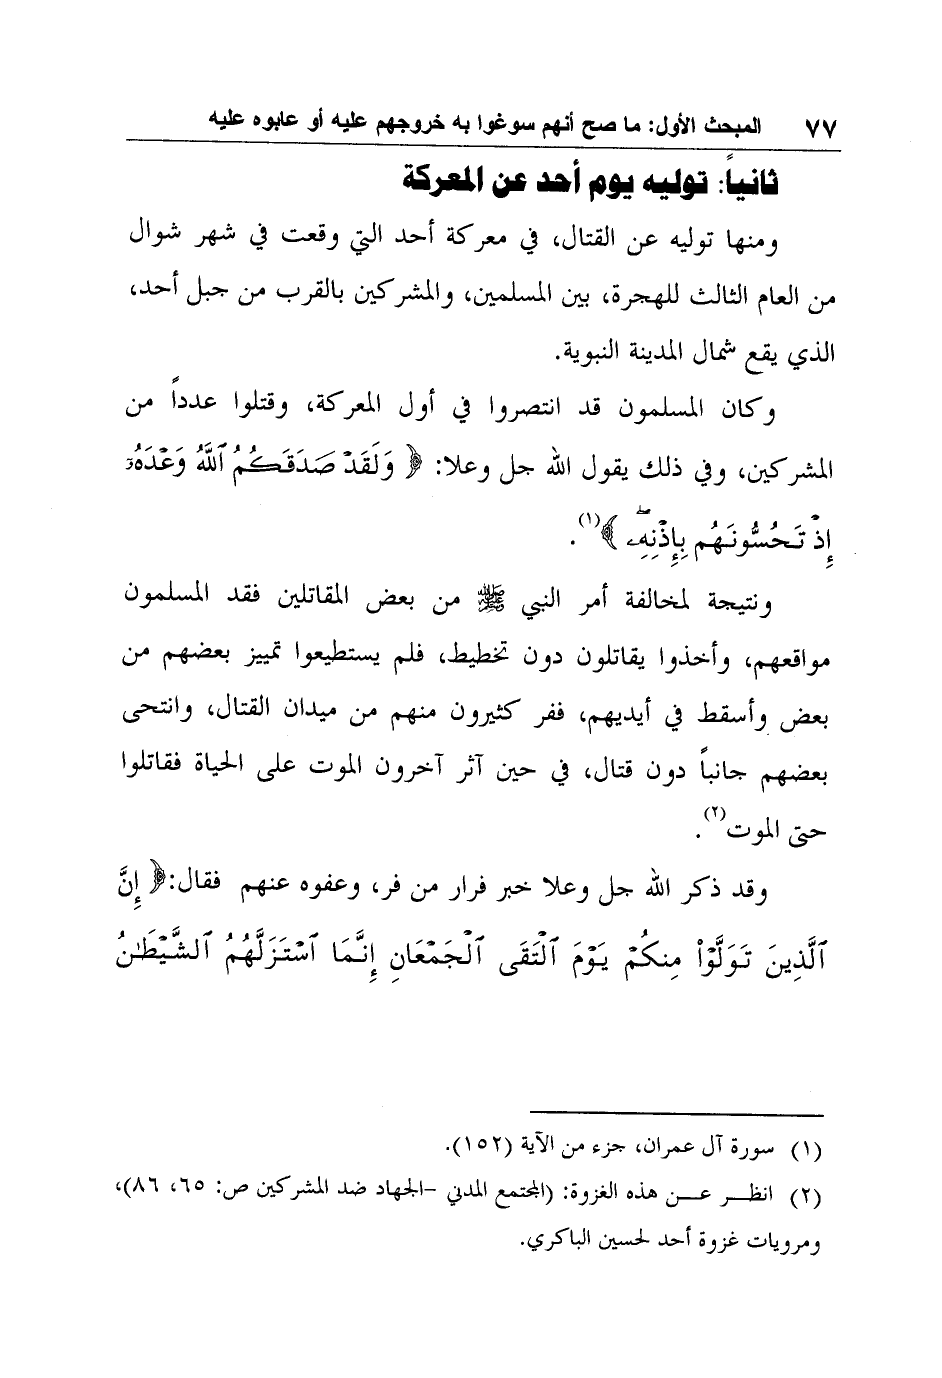 ٧٧ المبحث الأول: ما صح أنهم سوغوا به خروجهم عليه أو عابوه عليه
ثانياً: توليه يوم أحد عن المعركة
ومنها توليه عن القتال، في معركة أحد التي وقعت في شهر شوال
من العام الثالث للهجرة، بين المسلمين، والمشركين بالقرب من جبل أحد،
الذي يقع شمال المدينة النبوية.
وكان المسلمون قد انتصروا في أول المعركة، وقتلوا عدداً من
المشركين، وفي ذلك يقول الله جل وعلا: ﴿ وَلَقَدْ صَدَقَكُمُ ٱللَّهُ وَعْدَهُۥٓ
إِذْ تَحُسُّونَهُم بِإِذْنِهِۦۖ ﴾(١).
ونتيجة لمخالفة أمر النبي ﷺ من بعض المقاتلين فقد المسلمون
مواقعهم، وأخذوا يقاتلون دون تخطيط، فلم يستطيعوا تمييز بعضهم من
بعض وأسقط في أيديهم، ففر كثيرون منهم من ميدان القتال، وانتحى
بعضهم جانباً دون قتال، في حين آثر آخرون الموت على الحياة فقاتلوا
حتى الموت(٢).
وقد ذكر الله جل وعلا خبر فرار من فر، وعفوه عنهم فقال:﴿ إِنَّ
ٱلَّذِينَ تَوَلَّوْا۟ مِنكُمْ يَوْمَ ٱلْتَقَى ٱلْجَمْعَانِ إِنَّمَا ٱسْتَزَلَّهُمُ ٱلشَّيْطَـٰنُ
(١) سورة آل عمران، جزء من الآية (١٥٢).
(٢) انظـــر عـــن هذه الغزوة: (المجتمع المدني -الجهاد ضد المشركين ص: ٦٥، ٨٦)،
ومرويات غزوة أحد لحسين الباكري.